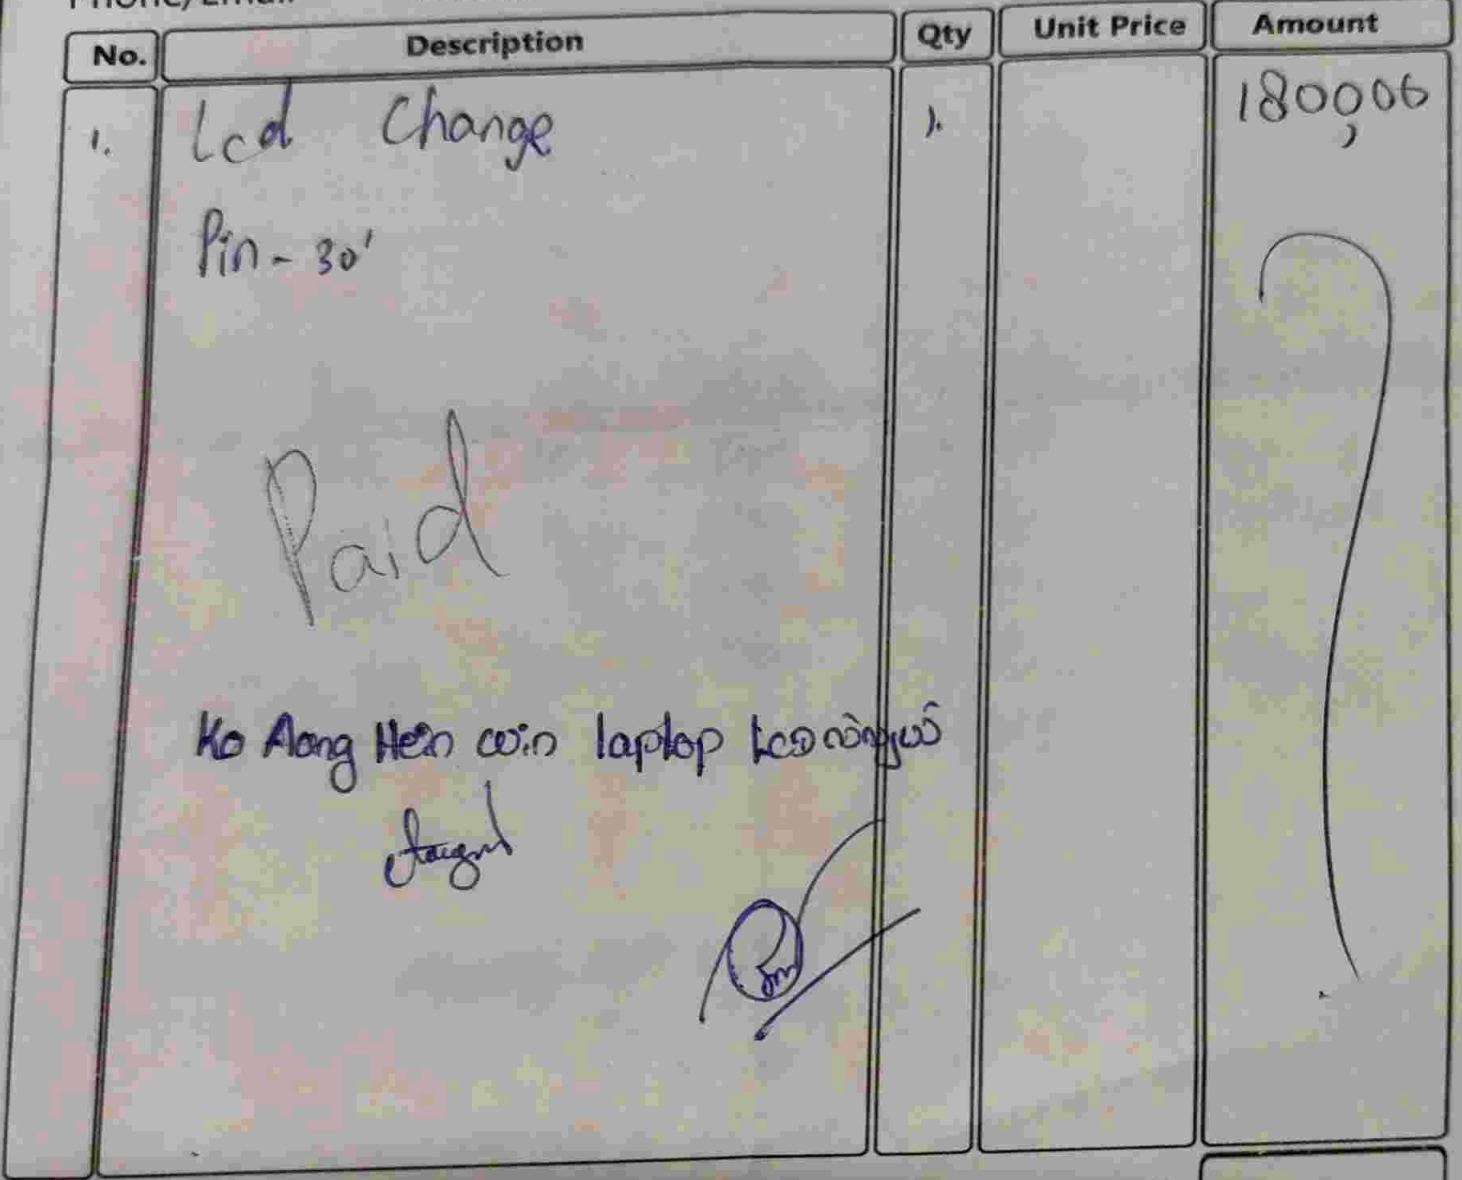 No. Description Qty Unit Price Amount
1. Lcd Change 1. 180,000
Pin - 30'
Paid
Ko Aong Hein win laptop LCD